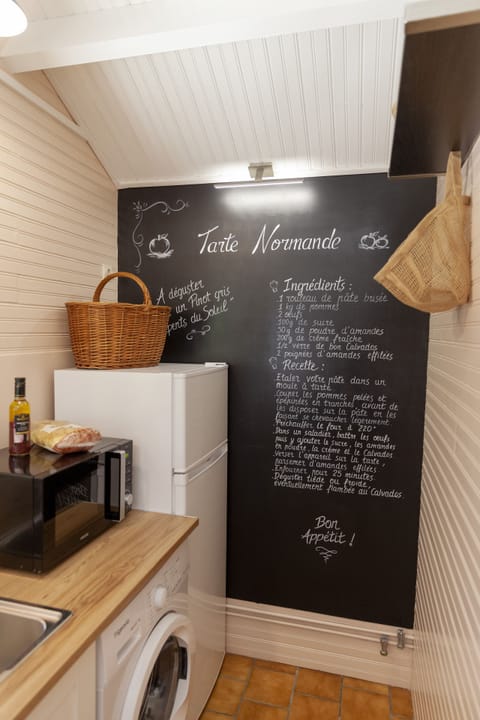 Tarte Normande
À déguster
un Pinot gris
du Soleil"
Ingrédients :
1 rouleau de pâte brisée
1 kg de pommes
2 oeufs
100g de sucre
50g de poudre d'amandes
200g de crème fraîche
1/2 verre de bon Calvados
2 poignées d'amandes effilées
Recette :
Etaler votre pâte dans un
moule à tarte.
Couper les pommes pelées et
épépinées en tranches avant de
les disposer sur la pâte en les
faisant se chevaucher légèrement.
Préchauffer le four à 220°
Dans un saladier, battre les oeufs
puis y ajouter le sucre, les amandes
en poudre, la crème et le Calvados.
verser l'appareil sur la tarte,
parsemer d'amandes effilées.
Enfourner pour 25 minutes.
Déguster tiède ou froide,
éventuellement flambée au Calvados.
Bon
Appétit !